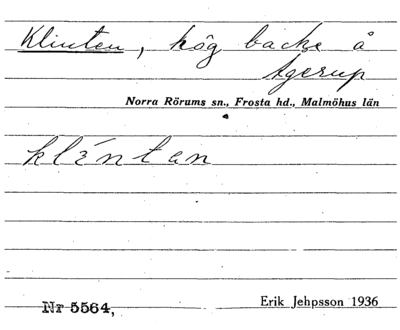 Klinten, hög backe å
Agerup
Norra Rörums sn., Frosta hd., Malmöhus län
klentan
Nr 5564,
Erik Jehpsson 1936